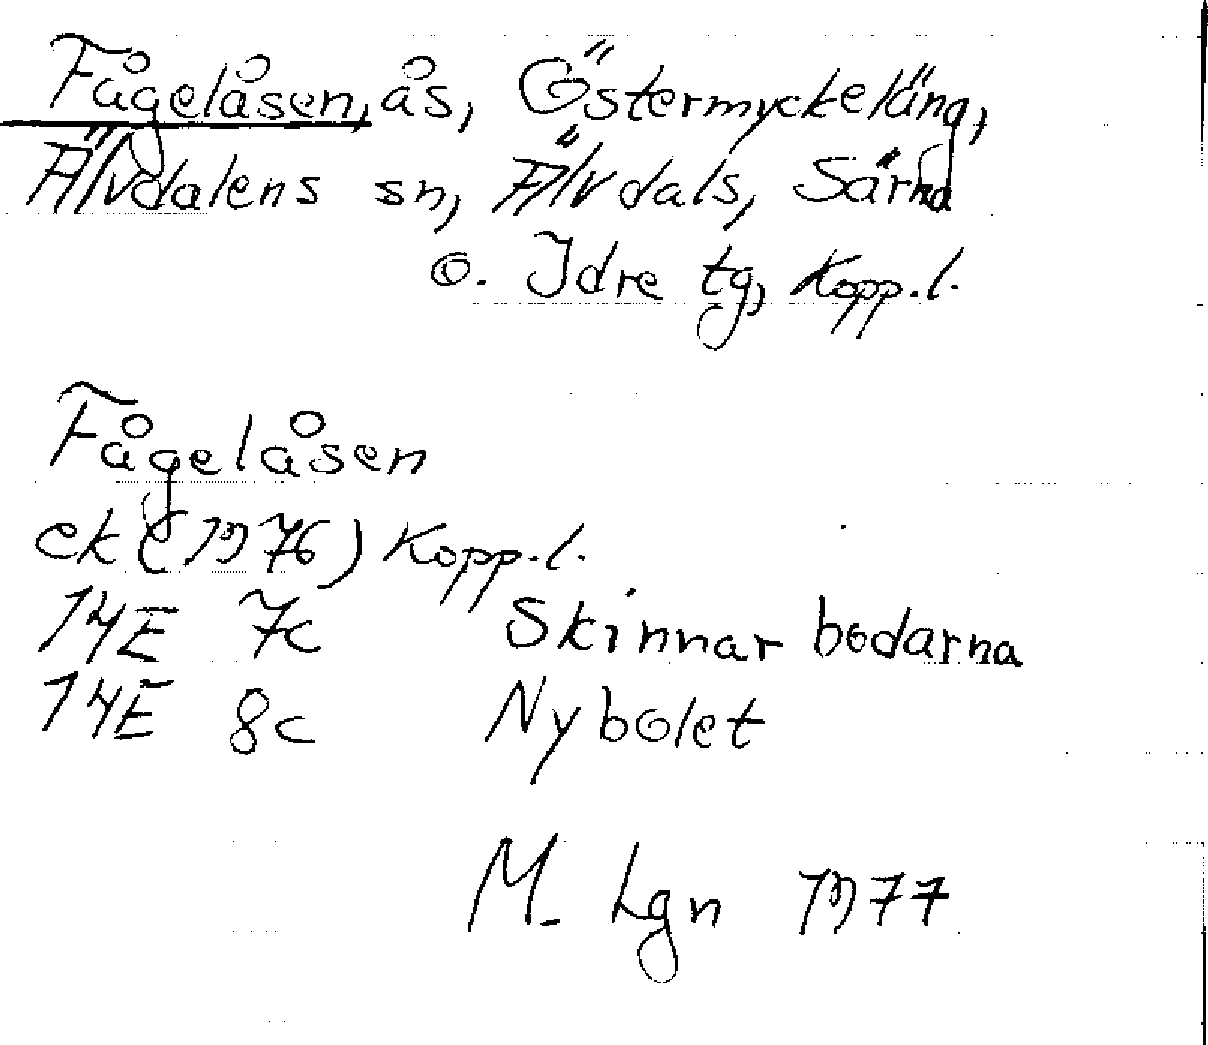 Fågelåsen, ås, Östermyckeläng,
Älvdalens sn, Älvdals, Särna
o. Idre tg, Kopp.l.
Fågelåsen
ek (1976) Kopp.l.
14E 7c Skinnarbodarna
14E 8c Nybolet
M. Lgn 1977